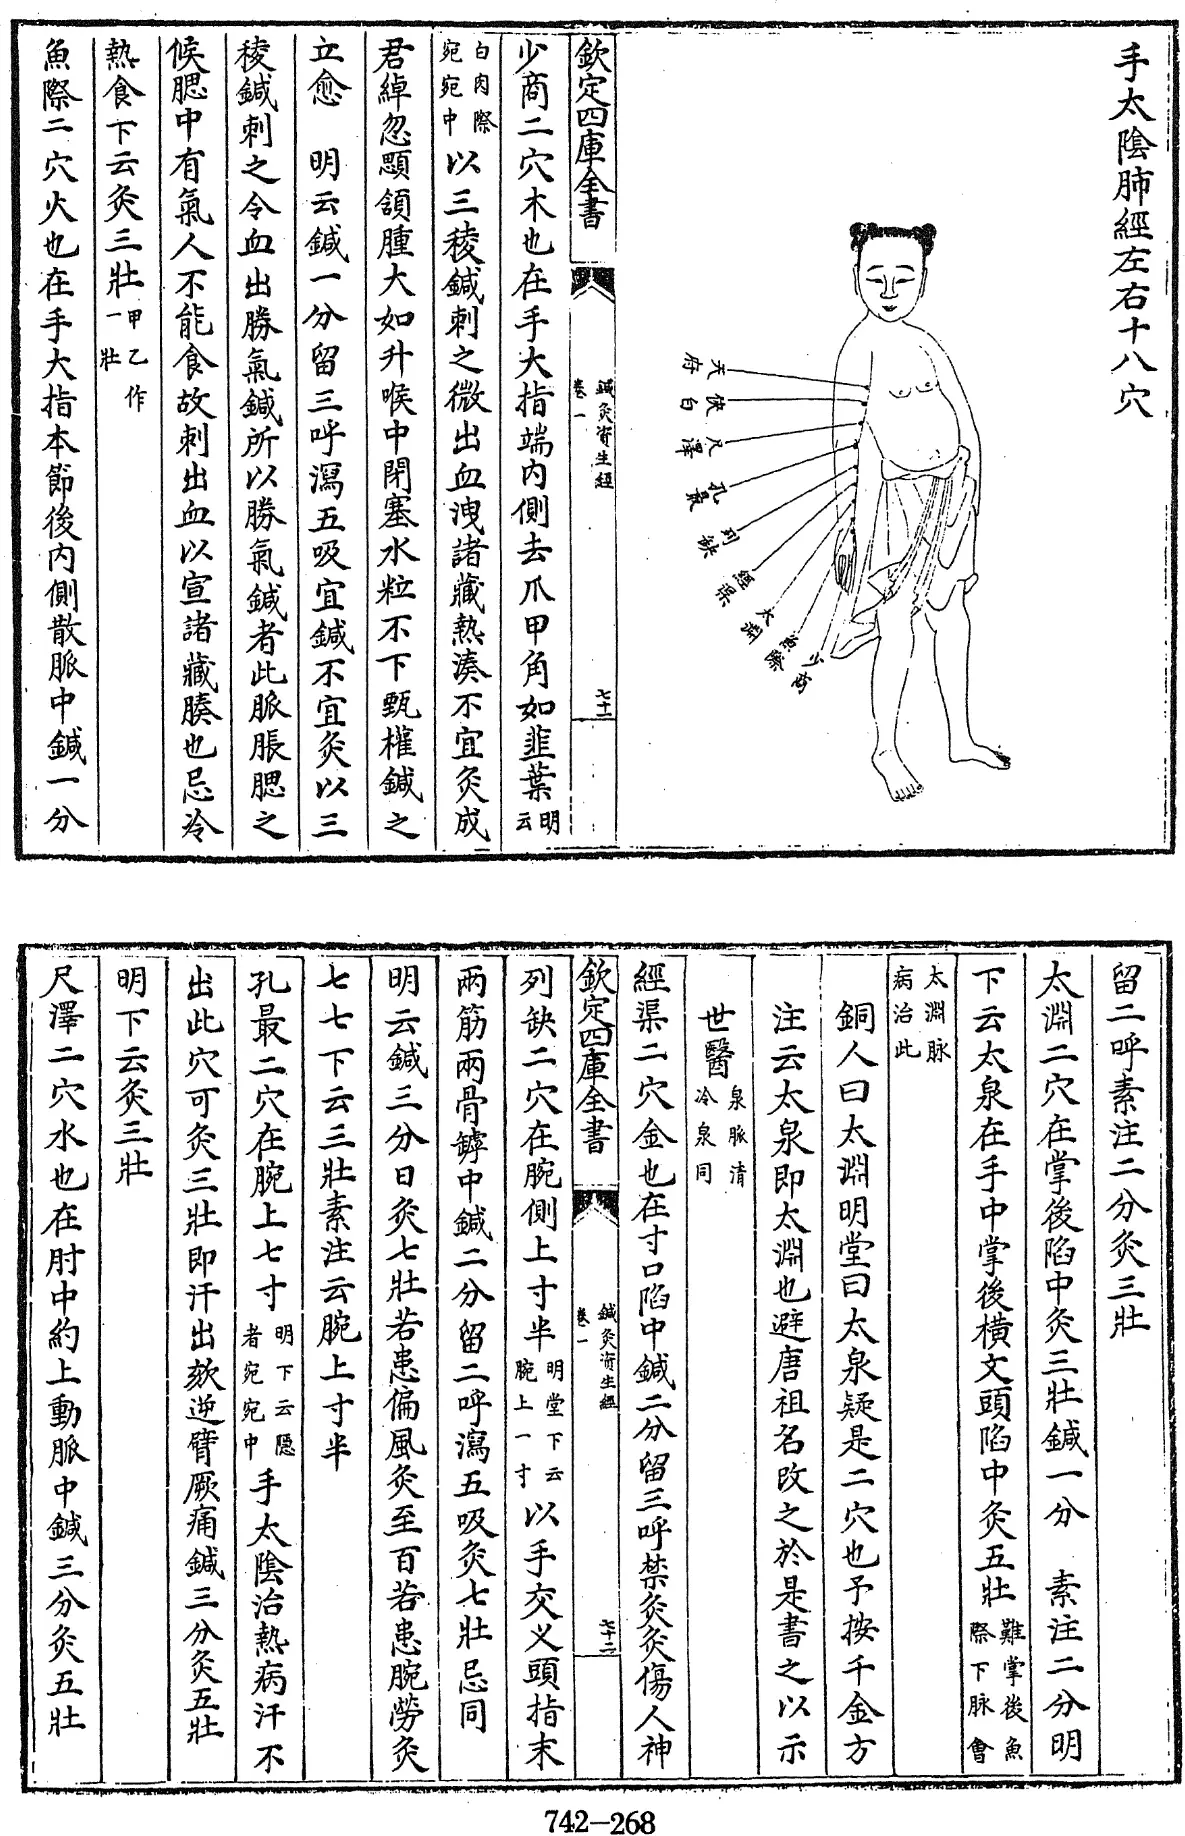 手太陰肺經左右十八穴
天府
俠白
尺澤
孔最
列缺
經渠
太淵
魚際
少商
欽定四庫全書
鍼灸資生經
卷一
七十一
少商二穴木也在手大指端内側去爪甲角如韭葉明云
白肉際宛宛中以三稜鍼刺之微出血洩諸藏熱湊不宜灸成
君綽忽顋頷腫大如升喉中閉塞水粒不下甄權鍼之
立愈　明云鍼一分留三呼瀉五吸宜鍼不宜灸以三
稜鍼刺之令血出勝氣鍼所以勝氣鍼者此脈脹腮之
候腮中有氣人不能食故刺出血以宣諸藏腠也忌冷
熱食下云灸三壯甲乙作一壯
魚際二穴火也在手大指本節後内側散脈中鍼一分
留二呼素注二分灸三壯
太淵二穴在掌後陷中灸三壯鍼一分　素注二分明
下云太泉在手中掌後横文頭陷中灸五壯難掌後魚際下脉會
太淵脉病治此
銅人曰太淵明堂曰太泉疑是二穴也予按千金方
注云太泉即太淵也避唐祖名改之於是書之以示
世醫泉脈清冷泉同
經渠二穴金也在寸口陷中鍼二分留三呼禁灸灸傷人神
欽定四庫全書
鍼灸資生經
卷一
七十二
列缺二穴在腕側上寸半明堂下云腕上一寸以手交义頭指末
兩筋兩骨罅中鍼二分留二呼瀉五吸灸七壯忌同
明云鍼三分日灸七壯若患偏風灸至百若患腕勞灸
七七下云三壯素注云腕上寸半
孔最二穴在腕上七寸明下云隱者宛宛中手太陰治熱病汗不
出此穴可灸三壯即汗出欬逆臂厥痛鍼三分灸五壯
明下云灸三壯
尺澤二穴水也在肘中約上動脈中鍼三分灸五壯
742-268